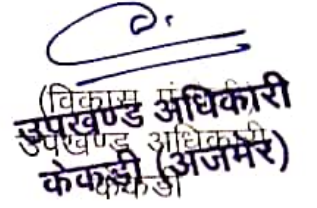 (विकास
उपखण्ड अधिकारी
उपखण्ड अधिकारी
केकड़ी (अजमेर)
केकड़ी